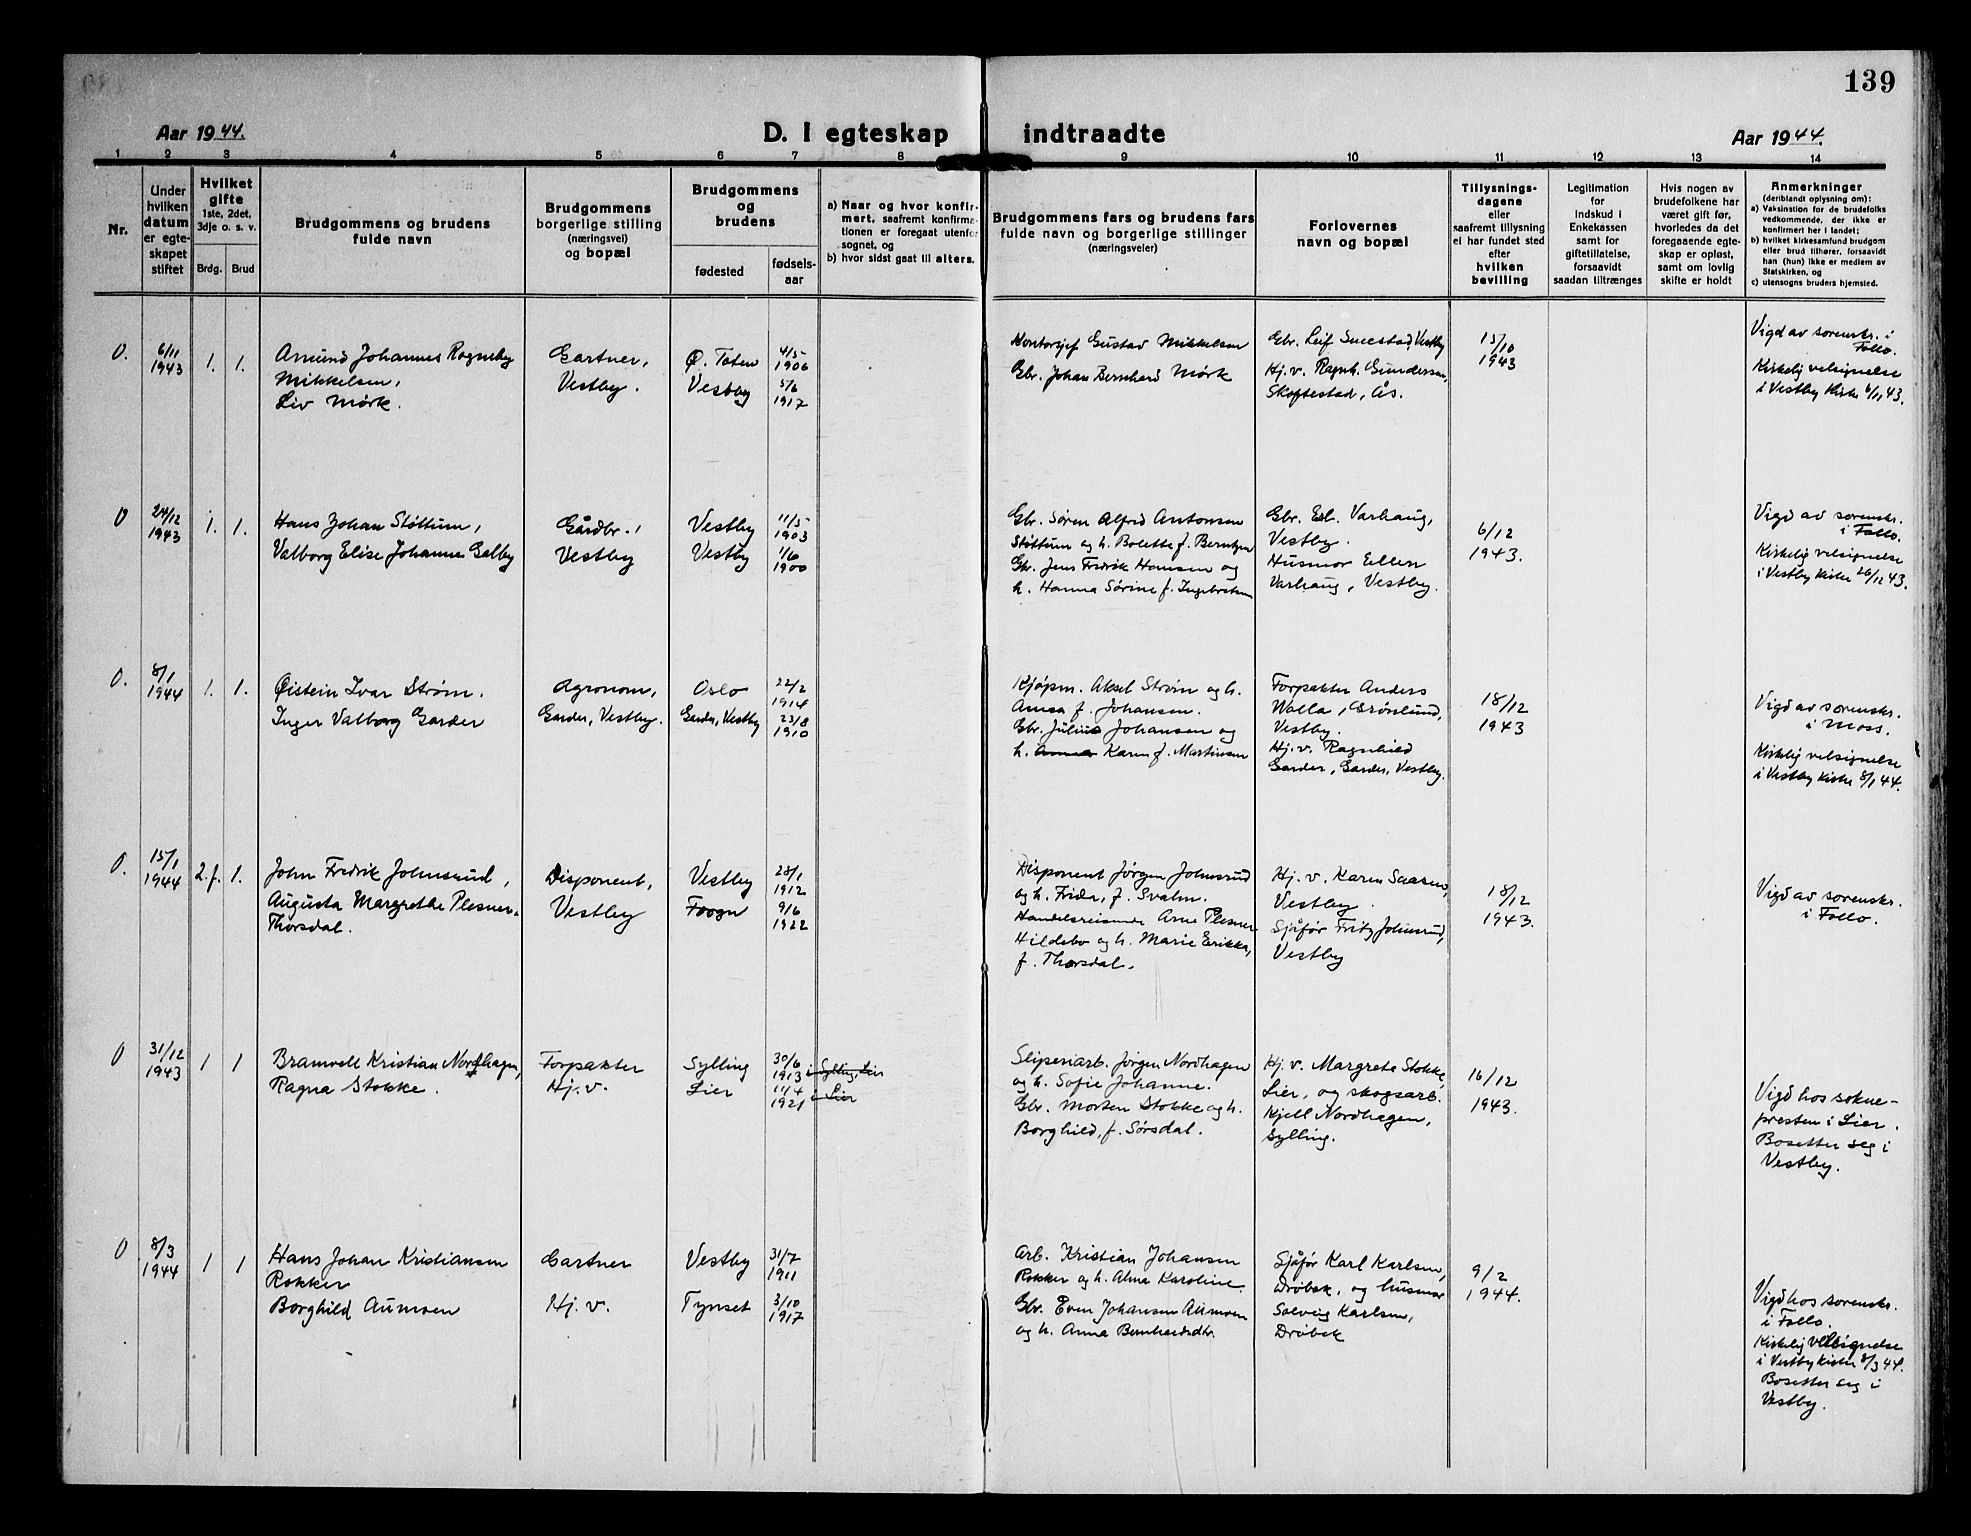 139
Aar 1944.
D. I egteskap indtraadte
Aar 1944.
1 2 3 4 5 6 7 8 9 10 11 12 13 14
Nr.
Under
hvilken
datum
er egte-
skapet
stiftet
Hvilket
gifte
1ste, 2det,
3dje o. s. v.
Brdg. Brud
Brudgommens og brudens
fulde navn
Brudgommens
borgerlige stilling
(næringsvei)
og bopæl
Brudgommens
og
brudens
fødested
fødsels-
aar
a) Naar og hvor konfir-
mert, saafremt konfirma-
tionen er foregaat utenfor
sognet, og
b) hvor sidst gaat til alters.
Brudgommens fars og brudens fars
fulde navn og borgerlige stillinger
(næringsveier)
Forlovernes
navn og bopæl
Tillysnings-
dagene
eller
saafremt tillysning
ei har fundet sted
efter
hvilken
bevilling
Legitimation
for
Indskud i
Enkekassen
samt for
giftetillatelse,
forsaavidt
saadan tiltrænges
Hvis nogen av
brudefolkene har
været gift før,
hvorledes da det
foregaaende egte-
skap er opløst,
samt om lovlig
skifte er holdt
Anmerkninger
(deriblandt oplysning om):
a) Vaksinstion for de brudefolks
vedkommende, der ikke er
konfirmert her i landet;
b) hvilket kirkesamfund brudgom
eller brud tilhører, forsaavidt
han (hun) ikke er medlem av
Statskirken, og
c) utensogns bruders hjemsted.
0.
6/11
1943
1. 1.
Amund Johannes Rognsby
Mikkelsen,
Liv Mørk.
Gartner,
Vestby.
Ø. Toten
Vestby
4/5
1906
5/6
1917
Kontorsjef Gustav Mikkelsen
Gbr. Johan Bernhard Mørk
Gbr. Leif Vestby
Hj. v. Ragnh. Gundersen,
Skoftestad, Ås.
15/10
1943
Vigd av sorenskr. i
Follo.
Kirkelig velsignelse
i Vestby Kirke 6/11 43.
0
24/12
1943
1. 1.
Hans Johan Støttum,
Valborg Elise Johanne Galby
Gårdbr.,
Vestby
Vestby
Vestby
11/5
1903
1/6
1900
Gbr. Søren Alfred Antonsen
Støttum og h. Bolette f. Berntzen
Gbr. Jens Fredrik Hansen og
h. Hanna Sørine f. Ingebretsen
Gbr. Erl. Varhaug,
Vestby.
Husmor Ellen
Varhaug, Vestby.
6/12
1943.
Vigd av sorenskr.
i Follo.
Kirkelig velsignelse
i Vestby kirke 26/12 43.
0.
8/1
1944
1. 1.
Øistein Ivar Strøm.
Inger Valborg Garder
Agronom,
Garder, Vestby.
Oslo
Garder, Vestby
22/2
1914
23/8
1910
Kjøpm. Aksel Strøm og h.
Anna f. Johansen.
Gbr. Julius Johansen og
h. Anna Karen f. Martinsen
Forpakter Anders
Walla, Grønlund,
Vestby.
Hj. v. Ragnhild
Garder, Garder, Vestby.
18/12
1943
Vigd av sorenskr.
i Moss.
Kirkelig velsignelse
i Vestby kirke 8/1 44.
0.
15/1
1944
2. f. 1.
John Fredrik Johnsrud,
Augusta Margrethe Plesner-
Thorsdal.
Disponent,
Vestby
Vestby
Frogn
28/1
1912
9/6
1922
Disponent Jørgen Johnsrud
og h. Frida, f. Svalm.
Handelsreisende Arne Plesner
Hildebo og h. Marie Erikka,
f. Thorsdal.
Hj. v. Karen Saasen,
Vestby.
Sjåfør Fritz Johnsrud,
Vestby
18/12
1943.
Vigd av sorenskr.
i Follo.
0
31/12
1943
1 1
Bramvell Kristian Nordhagen,
Ragna Stokke.
Forpakter
Hj. v.
Sylling
Lier
30/6
1913
11/4
1921
i Sylling, Lier
i Lier
Sliperiarb. Jørgen Nordhagen
og h. Sofie Johanne.
Gbr. Morten Stokke og h.
Borghild, f. Sørsdal.
Hj. v. Margrete Stokke,
Lier, og skogsarb.
Kjell Nordhagen,
Sylling.
16/12
1943.
Vigd hos sokne-
presten i Lier.
Bosetter seg i
Vestby.
0
8/3
1944
1 1
Hans Johan Kristiansen
Rokker
Borghild Aumoen
Gartner
Hj. v.
Vestby
Tynset
31/7
1911
3/10
1917
Arb. Kristian Johansen
Rokker og h. Alma Karoline.
Gbr. Even Johansen Aumoen
og h. Anna Bernhardsdtr.
Sjåfør Karl Karlsen,
Drøbak, og husmor
Solveig Karlsen,
Drøbak
9/2
1944.
Vigd hos sorenskr.
i Follo.
Kirkelig velsignelse
i Vestby kirke 8/3 44.
Bosetter seg i
Vestby.